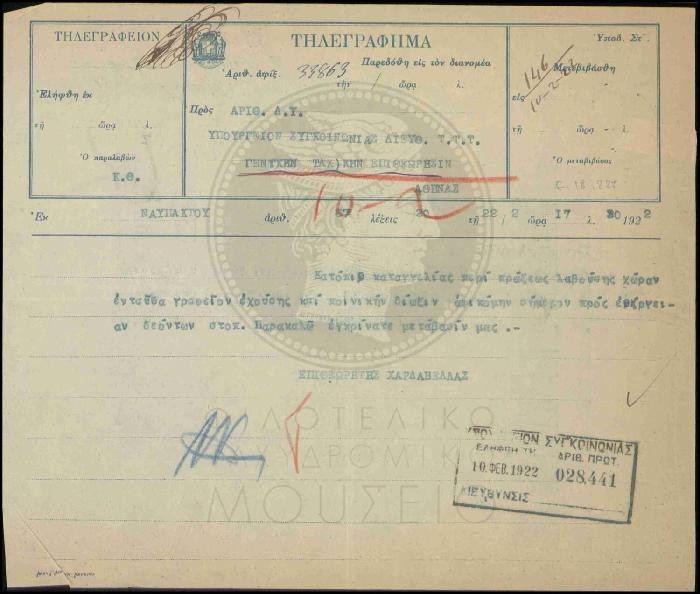 ΤΗΛΕΓΡΑΦΕΙΟΝ
Ἐλήφθη ἐκ
τῇ ὥρᾳ λ.
Ὁ παραλαβών
Κ.Θ.
ΤΗΛΕΓΡΑΦΗΜΑ
Ἀριθ. ἀφίξ. 33863 Παρεδόθη εἰς τὸν διανομέα
τὴν / ὥρᾳ λ.
Πρὸς ΑΡΙΘ. Δ.Υ.
ΥΠΟΥΡΓΕΙΟΝ ΣΥΓΚΟΙΝΩΝΙΑΣ ΔΙΕΥΘ. Τ.Τ.Τ.
ΓΕΝΙΚΗΝ ΤΑΧ)ΚΗΝ ΕΠΙΘΕΩΡΗΣΙΝ
ΑΘΗΝΑΣ
10-2
Ὑποβ. Στ.
Μετεβιβάσθη
146
εἰς 10-2-22
τῇ ὥρᾳ λ.
Ὁ μεταβιβάσας
Ἐκ ΝΑΥΠΑΚΤΟΥ ἀριθ. 37 λέξεις 20 τῇ 22 2 ὥρᾳ 17 λ. 30 1922
Κατόπιν καταγγελίας περί πράξεως λαβούσης χώραν
ἐνταῦθα γραφεῖον ἐχούσης καί ποινικήν δίωξιν ἀφικόμην σήμερον πρός ἐνέργει-
αν δεόντων στοπ. Παρακαλῶ ἐγκρίνατε μετάβασίν μας .-
ΕΠΙΘΕΩΡΗΤΗΣ ΧΑΡΔΑΒΕΛΛΑΣ
ΥΠΟΥΡΓΕΙΟΝ ΣΥΓΚΟΙΝΩΝΙΑΣ
ΕΛΗΦΘΗ ΤΗ ΑΡΙΘ. ΠΡΩΤ.
10 ΦΕΒ. 1922 028.441
ΔΙΕΥΘΥΝΣΙΣ
ΦΙΛΟΤΕΛΙΚΟ
ΤΑΧΥΔΡΟΜΙΚΟ
ΜΟΥΣΕΙΟ